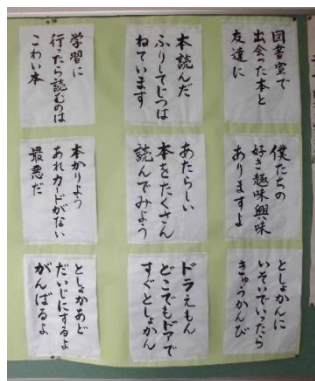 図書室で
出会った本と
友達に
本読んだ
ふりしてじつは
ねています
学習に
行ったら読むのは
こわい本
僕たちの
好き趣味興味
ありますよ
あたらしい
本をたくさん
読んでみよう
本かりよう
あれカードがない
最悪だ
としょかんに
いそいでいったら
きゅうかんび
ドラえもん
どこでもドアで
すぐとしょかん
としょかあど
だいじにするよ
がんばるよ